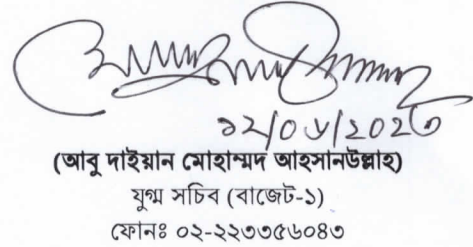 ১২/০৬/২০২৩
(আবু দাইয়ান মোহাম্মদ আহসানউল্লাহ)
যুগ্ম সচিব (বাজেট-১)
ফোনঃ ০২-২২৩৩৫৬০৪৩